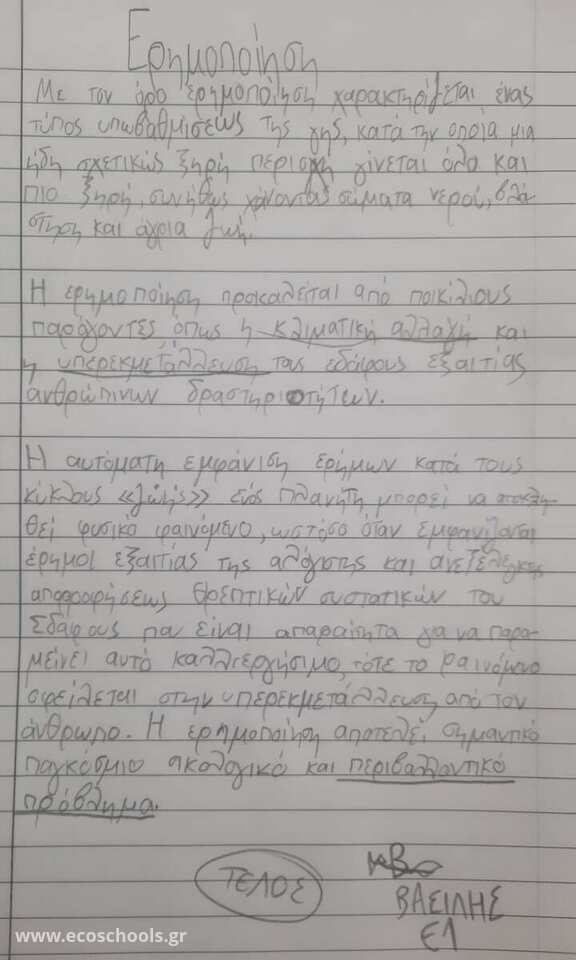 Ερημοποίηση
Με τον όρο ερημοποίηση χαρακτηρίζεται ένας
τύπος υπωβαθμίσεως της γης, κατά την οποία μια
ήδη σχετικώς ξηρή περιοχη γίνεται όλο και
πιο ξηρή, συνήθως χάνοντας σώματα νερού, βλά
στηση και άγρια ζωή.
Η ερημοποίηση προκαλείται από ποικίλους
παράγοντες, όπως η κλιματική αλλαγή και
η υπερεκμετάλλευση του εδάφους εξαιτίας
ανθρώπινων δραστηριοτήτων.
Η αυτόματη εμφάνιση ερήμων κατά τους
κύκλους «ζωής» ενός πλανήτη μπορεί να αποκλη
θεί φυσικό φαινόμενο, ωστόσο όταν εμφανίζονται
έρημοι εξαιτίας της αλόγιστης και ανεξέλεγκτης
απορροφήσεως θρεπτικών συστατικών του
Εδάφους που είναι απαραίτητα για να παρα-
μείνει αυτό καλλιεργήσιμο, τότε το φαινόμενο
οφείλεται στην υπερεκμετάλλευση από τον
άνθρωπο. Η ερημοποίηση αποτελεί σημαντικό
παγκόσμιο οικολογικό και περιβαλλοντικό
πρόβλημα.
ΤΕΛΟΣ
ΒΑΣΙΛΗΣ
Ε1
www.ecoschools.gr